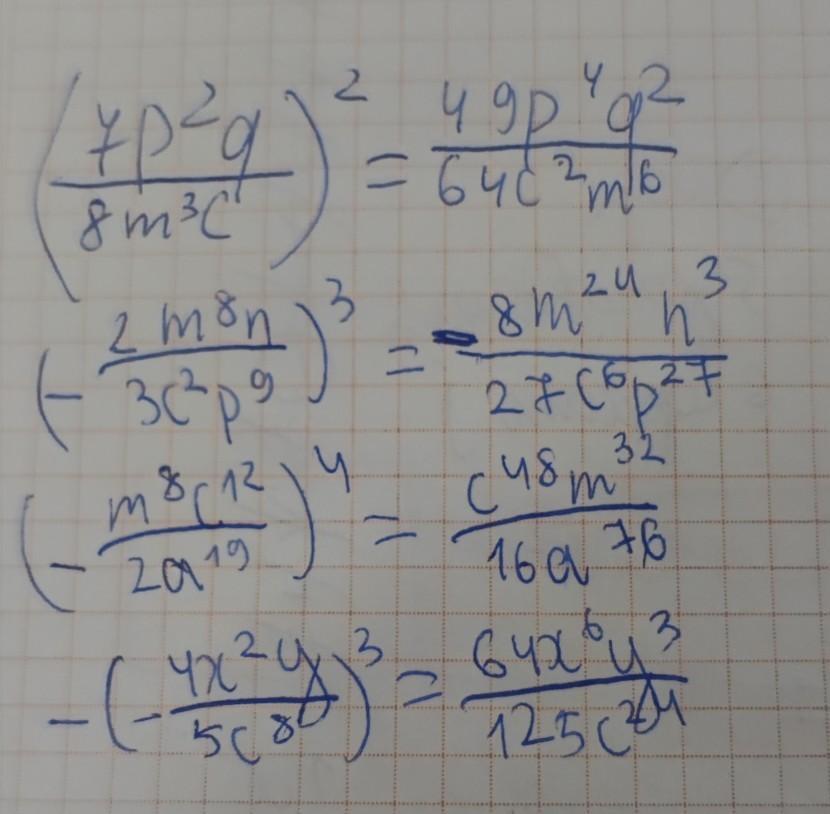 (7p²q / 8m³c)² = 49p⁴q² / 64c²m⁶
(- 2m⁸n / 3c²p⁹)³ = - 8m²⁴n³ / 27c⁶p²⁷
(- m⁸c¹² / 2a¹⁹)⁴ = c⁴⁸m³² / 16a⁷⁶
-(- 4x²y / 5c⁸)³ = 64x⁶y³ / 125c²⁴